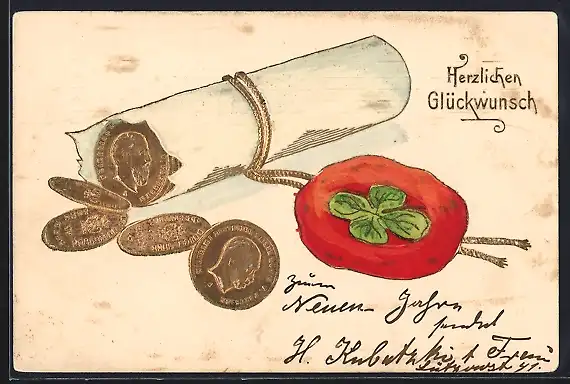 Herzlichen
Glückwunsch
zum
Neuen Jahre
sendet
H. Kubatzki & Frau